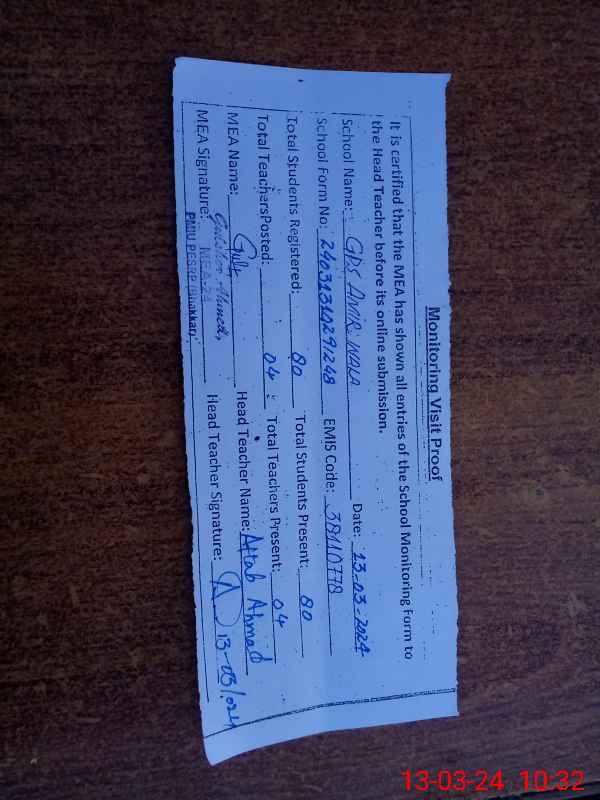 Monitoring Visit Proof
It is certified that the MEA has shown all entries of the School Monitoring Form to
the Head Teacher before its online submission.
School Name: GPS AMIR WALA Date: 13-03-2024
School Form No: 24031310291248 EMIS Code: 38110778
Total Students Registered: 80 Total Students Present: 80
Total TeachersPosted: 04 Total Teachers Present: 04
MEA Name: Head Teacher Name: Aftab Ahmad
MEA Signature: Gulshan Ahmed, Head Teacher Signature: 13-03/024
PMIU PESRP (Bhakkar)
13-03-24 10:32